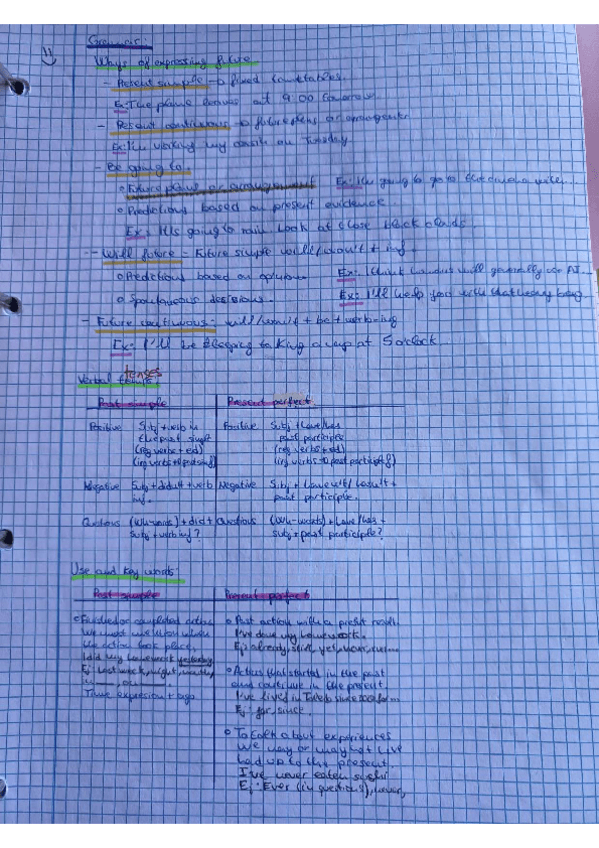 Grammar:
Ways of expressing future
- Present simple → fixed timetables.
Ex: The plane leaves at 9:00 tomorrow
- Present continuous → future plans or arrangements
Ex: I'm working my on Tuesday
- Be going to.
o Future plans or arrangement Ex: I'm going to go to
o Predictions based on present evidence
Ex: It is going to rain. Look at those black clouds.
- Will future - Future simple will/won't + inf.
o Predictions based on opinions. Ex: I think humans will generally use AI.
o Spontaneous decisions. Ex: I'll help you with that heavy bag.
- Future continuous: will/won't + be + verb-ing
Ex: I'll be sleeping taking a nap at 5 o'clock
Verbal tenses
Past simple Present perfect
Positive Subj + verb in Positive Subj + have/has
the past simple past participle
(reg verbs + ed) (reg verbs + ed)
(irg verbs → past simple) (irg verbs → past participle)
Negative Subj + didn't + verb Negative Subj + haven't/hasn't +
inf. past participle.
Questions (Wh-words) + did + Questions (Wh-words) + have/has +
subj + verb inf? subj + past participle?
Use and key words:
Past simple Present perfect
o Finished or completed action o Past action with a present result.
We must mention when I've done my homework.
the action took place. Ej: already, still, yet, never,
I did my homework yesterday
Ej: Last week, night, month, o Actions that started in the past
and continue in the present
Time expression + ago I've lived in since
Ej: for, since.
o To talk about experiences
We may or may not have
had up to the present.
I've never eaten sushi
Ej: Ever (in questions), never,